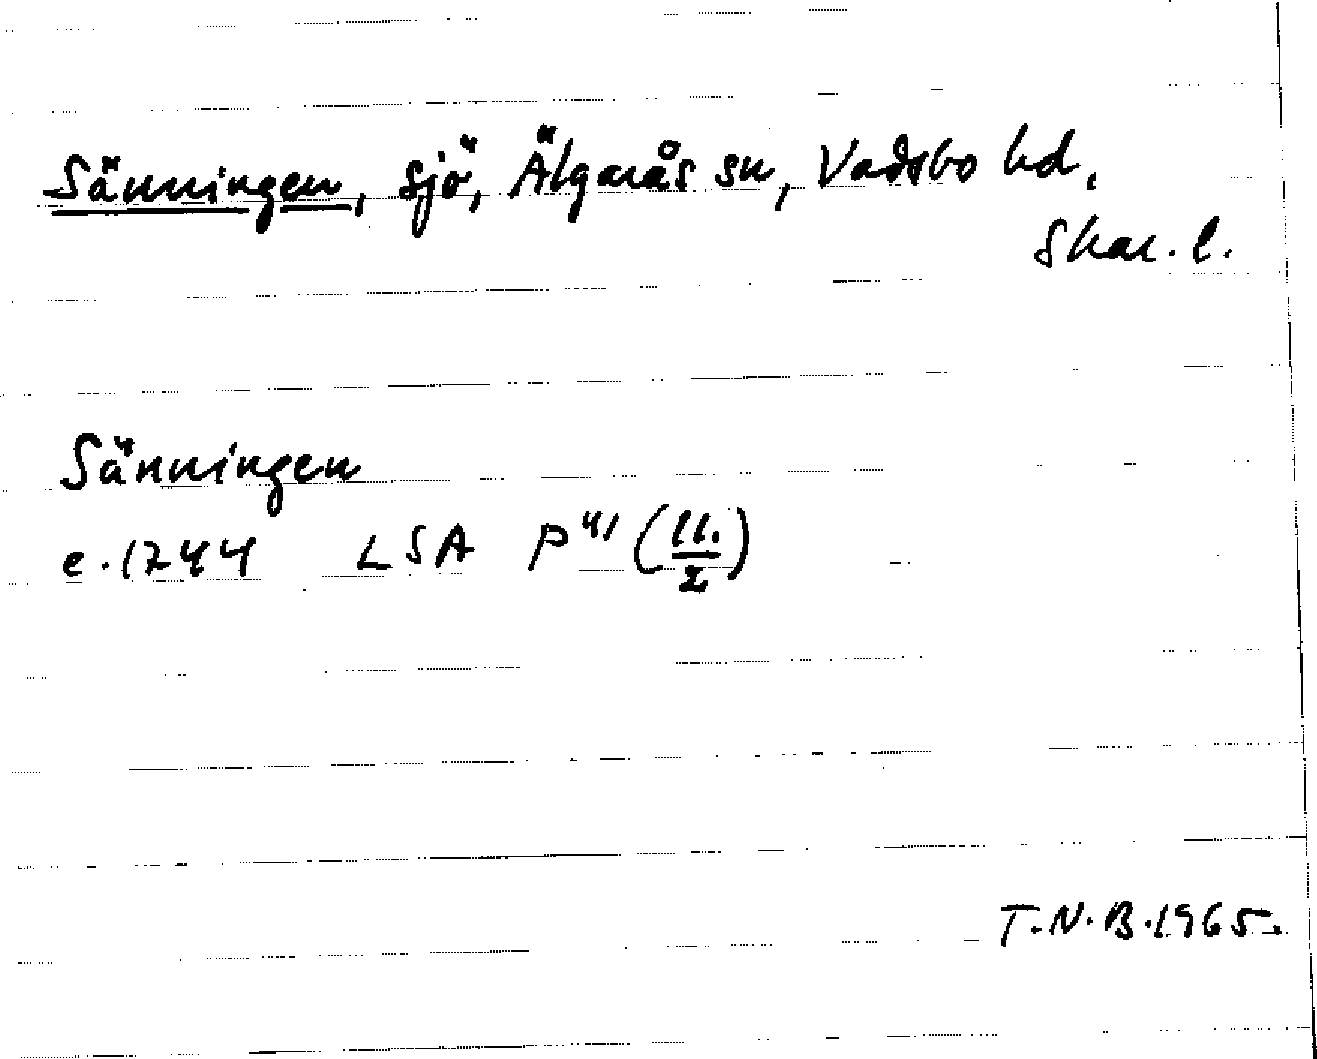 Sänningen, sjö, Älgarås sn, Vadsbo hd,
Skar. l.
Sänningen
e. 1744 LSA P 41 (11./2)
T.N.B. 1965.